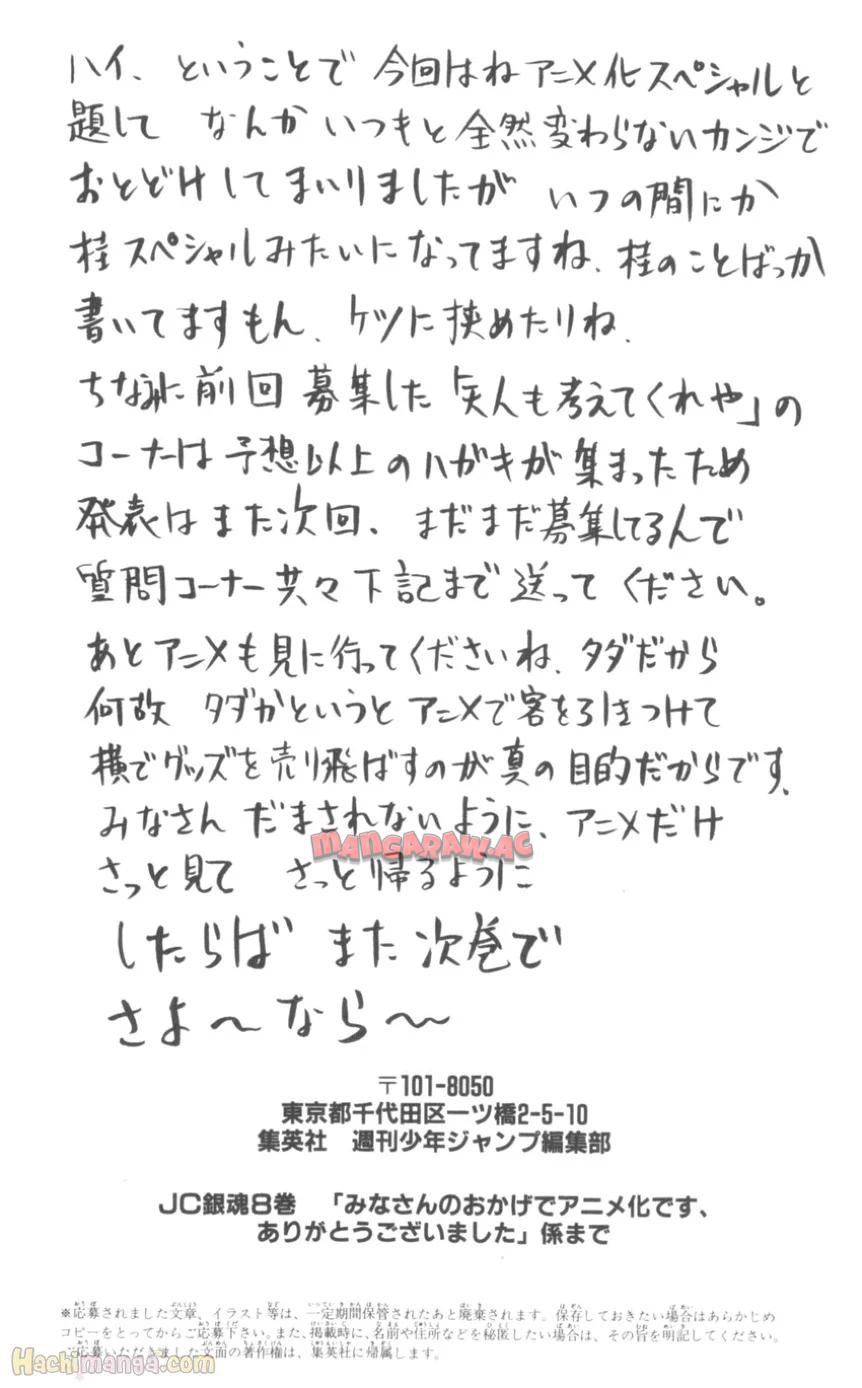 ハイ、ということで 今回はねアニメ化スペシャルと
題して なんか いつもと全然変わらないカンジで
おとどけしてまいりましたが いつの間にか
桂スペシャルみたいになってますね、桂のことばっか
書いてますもん、ケツに挟めたりね、
ちなみに前回募集した「天人も考えてくれや」の
コーナーは予想以上のハガキが集まったため
発表はまた次回、まだまだ募集してるんで
質問コーナー共々下記まで送ってください。
あとアニメも見に行ってくださいね、タダだから
何故 タダかというと アニメで客を引きつけて
横でグッズを売り飛ばすのが真の目的だからです、
みなさん だまされないように、アニメだけ
MANGARAW.AC
さっと見て さっと帰るように
したらば また次巻で
さよ〜なら〜
〒101-8050
東京都千代田区一ツ橋2-5-10
集英社 週刊少年ジャンプ編集部
JC銀魂8巻 「みなさんのおかげでアニメ化です、
ありがとうございました」係まで
※応募されました文章、イラスト等は、一定期間保管されたあと廃棄されます。保存しておきたい場合はあらかじめ
コピーをとってからご応募下さい。また、掲載時に、名前や住所などを秘匿したい場合は、その旨を明記してください。
ご応募いただきました文面の著作権は、集英社に帰属します。
Hachimanga.com